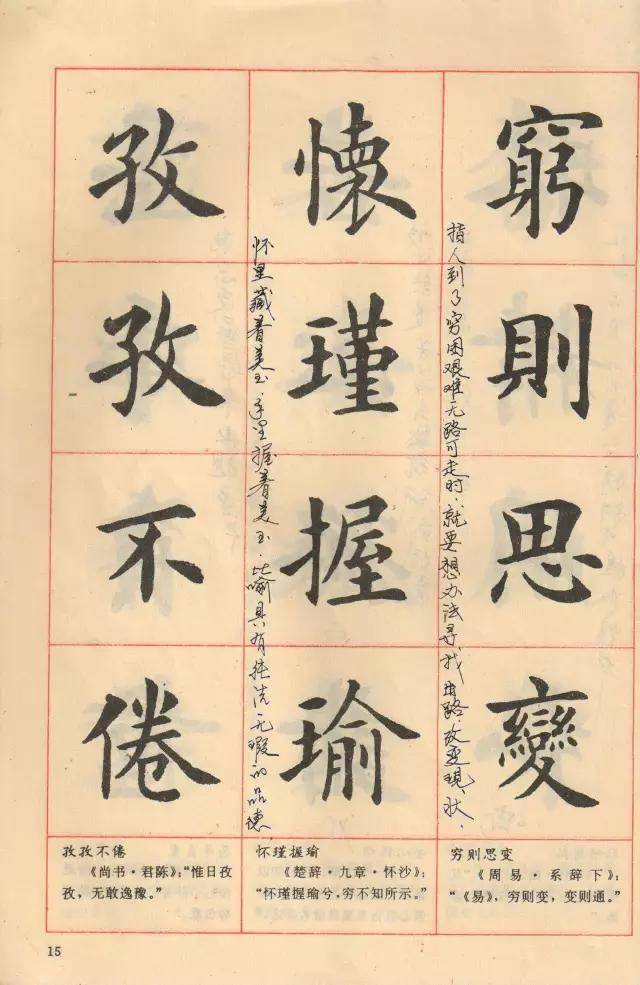 窮則思變
指人到了穷困艰难无路可走时，就要想办法寻找出路，改变现状，
懷瑾握瑜
怀里藏着美玉，手里握着美玉，比喻具有纯洁无瑕的品德
孜孜不倦
孜孜不倦
《尚书·君陈》：“惟日孜
孜，无敢逸豫。”
怀瑾握瑜
《楚辞·九章·怀沙》：
“怀瑾握瑜兮，穷不知所示。”
穷则思变
《周易·系辞下》：
“《易》，穷则变，变则通。”
15